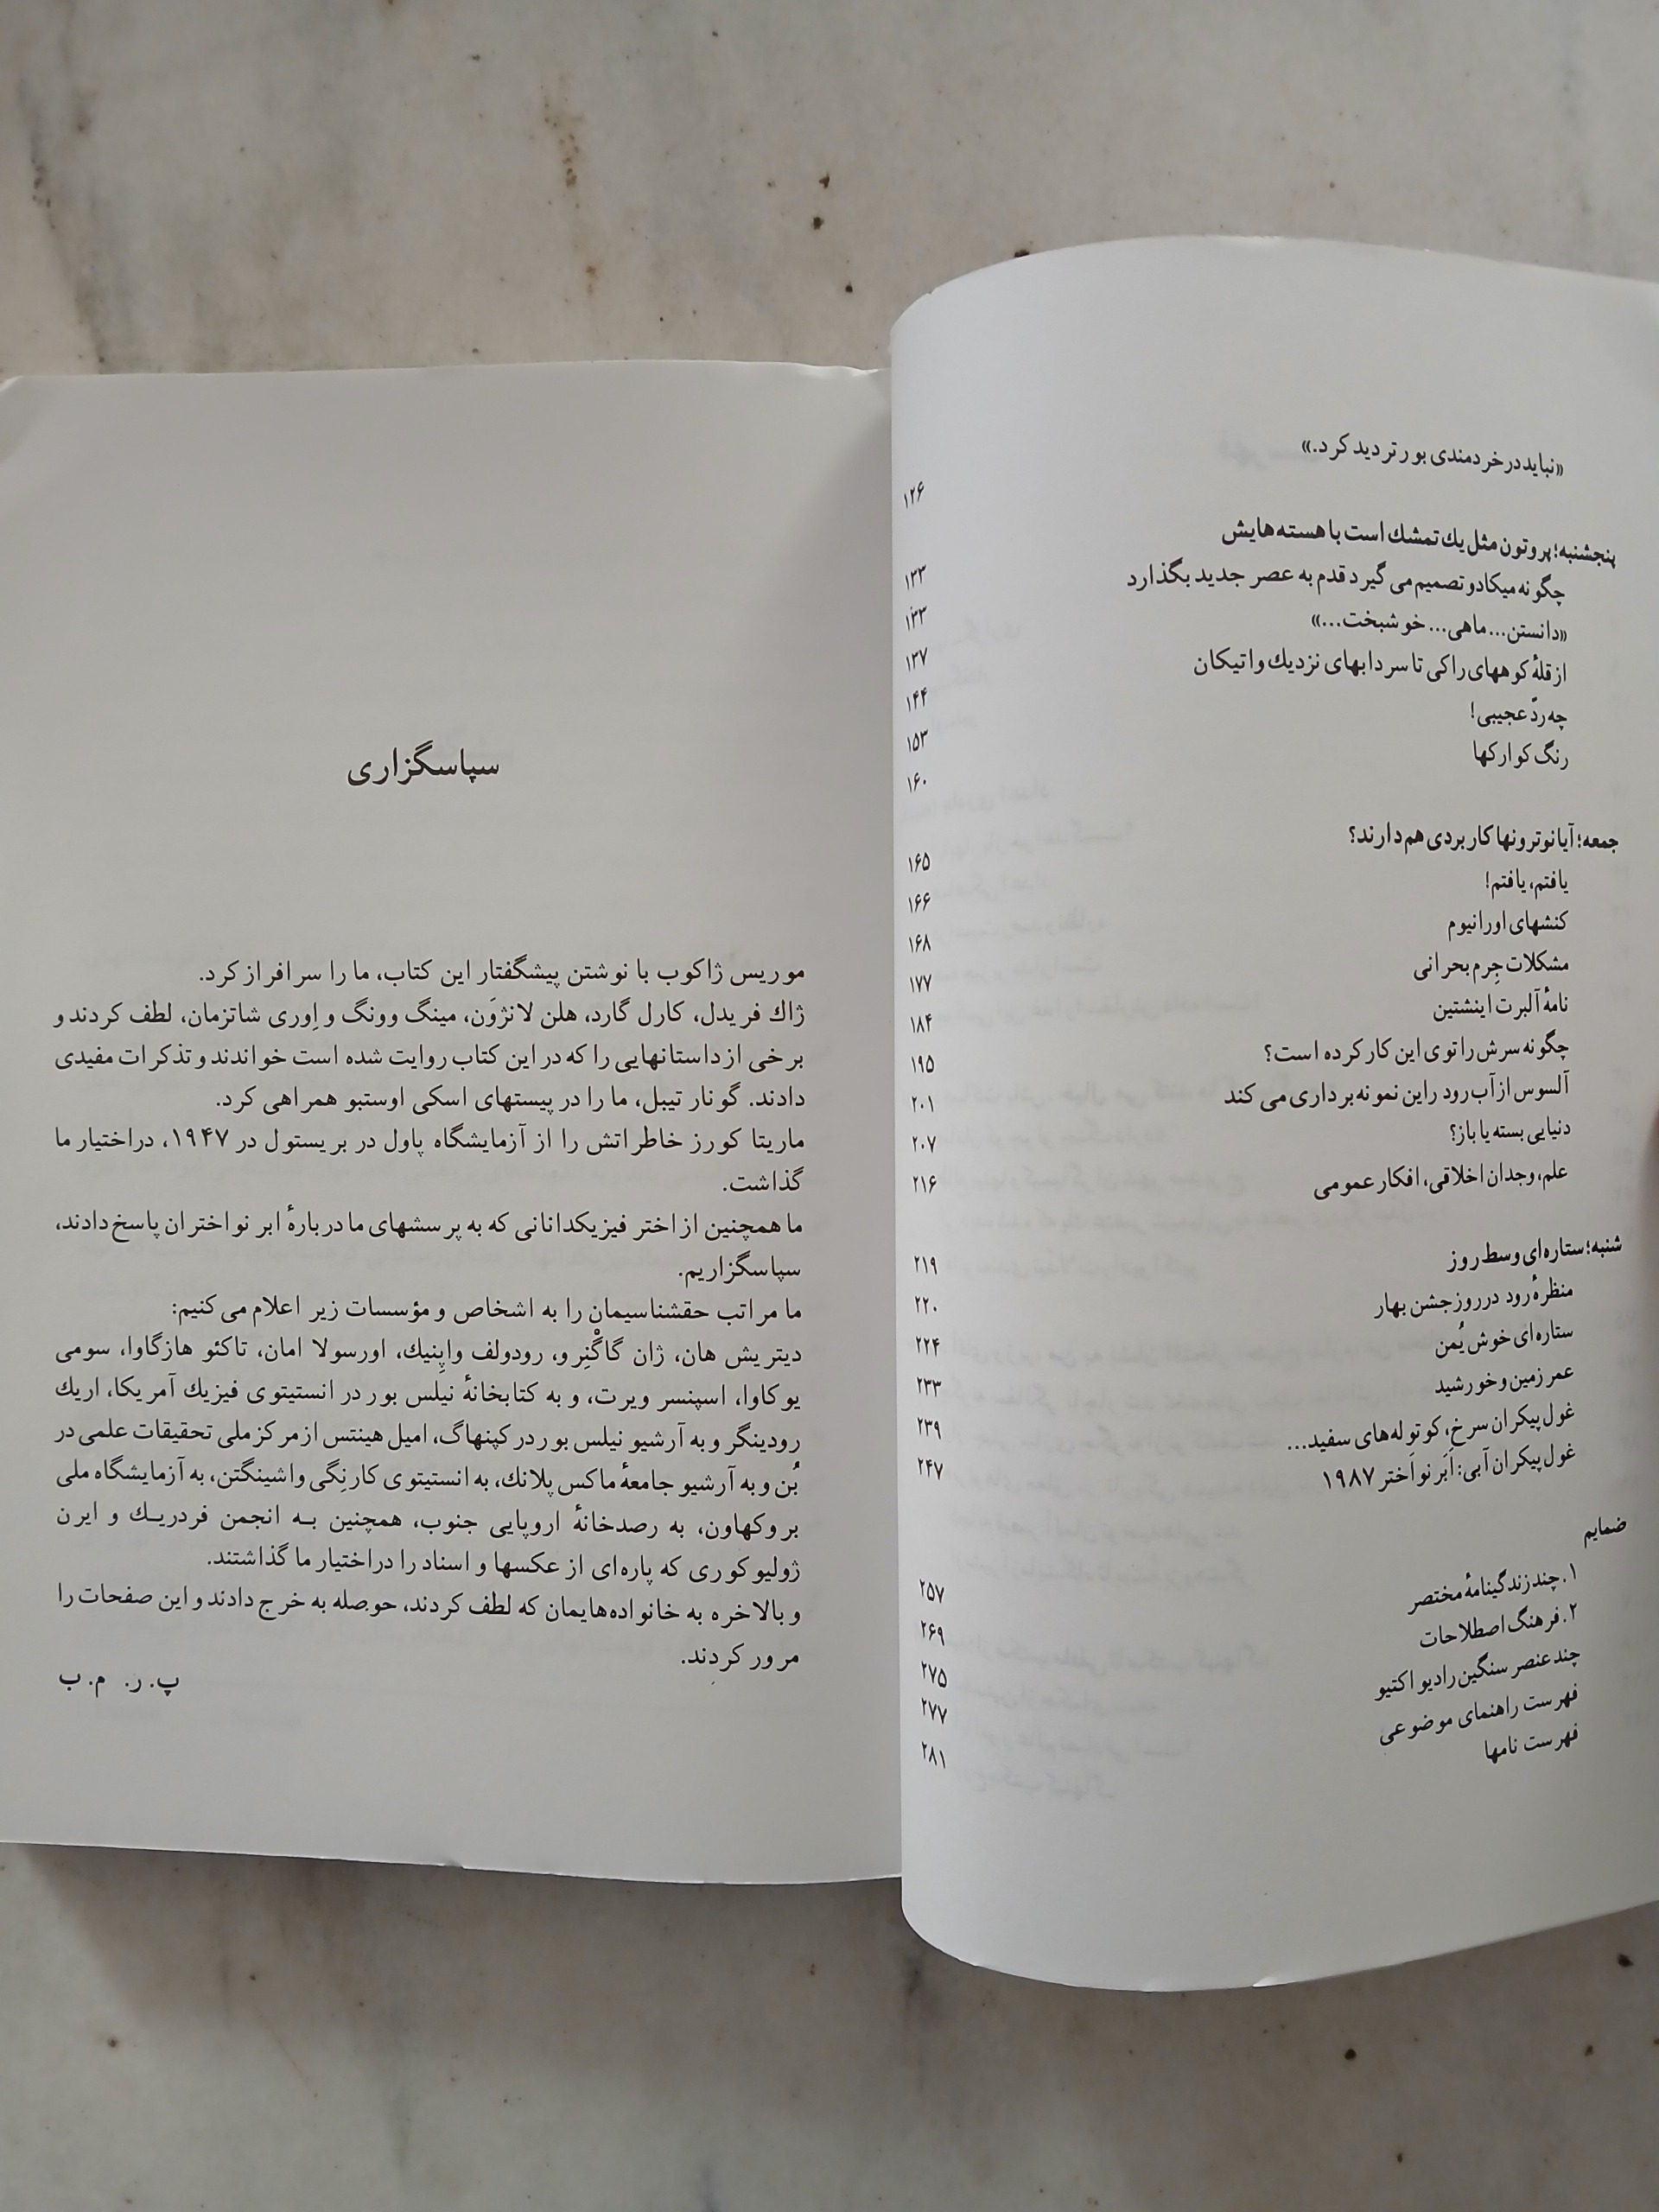 «نباید در خردمندی بور تردید کرد.» ۱۲۶
پنجشنبه؛ پروتون مثل یك تمشك است با هسته‌هایش ۱۳۳
چگونه میکادو تصمیم می گیرد قدم به عصر جدید بگذارد ۱۳۳
«دانستن... ماهی... خوشبخت...» ۱۳۷
از قلهٔ کوههای راکی تا سردابهای نزدیك واتیکان ۱۴۴
چه ردّ عجیبی! ۱۵۳
رنگ کوارکها ۱۶۰
جمعه؛ آیا نوترونها کاربردی هم دارند؟ ۱۶۵
یافتم، یافتم! ۱۶۶
کنشهای اورانیوم ۱۶۸
مشکلات جِرم بحرانی ۱۷۷
نامهٔ آلبرت اینشتین ۱۸۴
چگونه سرش را توی این کار کرده است؟ ۱۹۵
آلسوس از آب رود راین نمونه برداری می کند ۲۰۱
دنیایی بسته یا باز؟ ۲۰۷
علم، وجدان اخلاقی، افکار عمومی ۲۱۶
شنبه؛ ستاره‌ای وسط روز ۲۱۹
منظرهٔ رود در روز جشن بهار ۲۲۰
ستاره‌ای خوش یُمن ۲۲۴
عمر زمین و خورشید ۲۳۳
غول پیکران سرخ، کوتوله‌های سفید... ۲۳۹
غول پیکران آبی: اَبَر نواَختر ۱۹۸۷ ۲۴۷
ضمایم
۱. چند زندگینامهٔ مختصر ۲۵۷
۲. فرهنگ اصطلاحات ۲۶۹
چند عنصر سنگین رادیو اکتیو ۲۷۵
فهرست راهنمای موضوعی ۲۷۷
فهرست نامها ۲۸۱
سپاسگزاری
موریس ژاکوب با نوشتن پیشگفتار این کتاب، ما را سرافراز کرد.
ژاك فریدل، کارل گارد، هلن لانژوَن، مینگ وونگ و اِوری شاتزمان، لطف کردند و
برخی از داستانهایی را که در این کتاب روایت شده است خواندند و تذکرات مفیدی
دادند. گونار تیبل، ما را در پیستهای اسکی اوستبو همراهی کرد.
ماریتا کورز خاطراتش را از آزمایشگاه پاول در بریستول در ۱۹۴۷، دراختیار ما
گذاشت.
ما همچنین از اختر فیزیکدانانی که به پرسشهای ما دربارهٔ ابر نواختران پاسخ دادند،
سپاسگزاریم.
ما مراتب حقشناسیمان را به اشخاص و مؤسسات زیر اعلام می کنیم:
دیتریش هان، ژان گاگْنِرو، رودولف واپِنیك، اورسولا امان، تاکئو هازگاوا، سومی
یوکاوا، اسپنسر ویرت، و به کتابخانهٔ نیلس بور در انستیتوی فیزیك آمریکا، اریك
رودینگر و به آرشیو نیلس بور در کپنهاگ، امیل هینتس از مرکز ملی تحقیقات علمی در
بُن و به آرشیو جامعهٔ ماکس پلانك، به انستیتوی کارنِگی واشینگتن، به آزمایشگاه ملی
بروکهاون، به رصدخانهٔ اروپایی جنوب، همچنین به انجمن فردریك و ایرن
ژولیو کوری که پاره‌ای از عکسها و اسناد را دراختیار ما گذاشتند.
و بالاخره به خانواده‌هایمان که لطف کردند، حوصله به خرج دادند و این صفحات را
مرور کردند.
پ. ر. م. ب